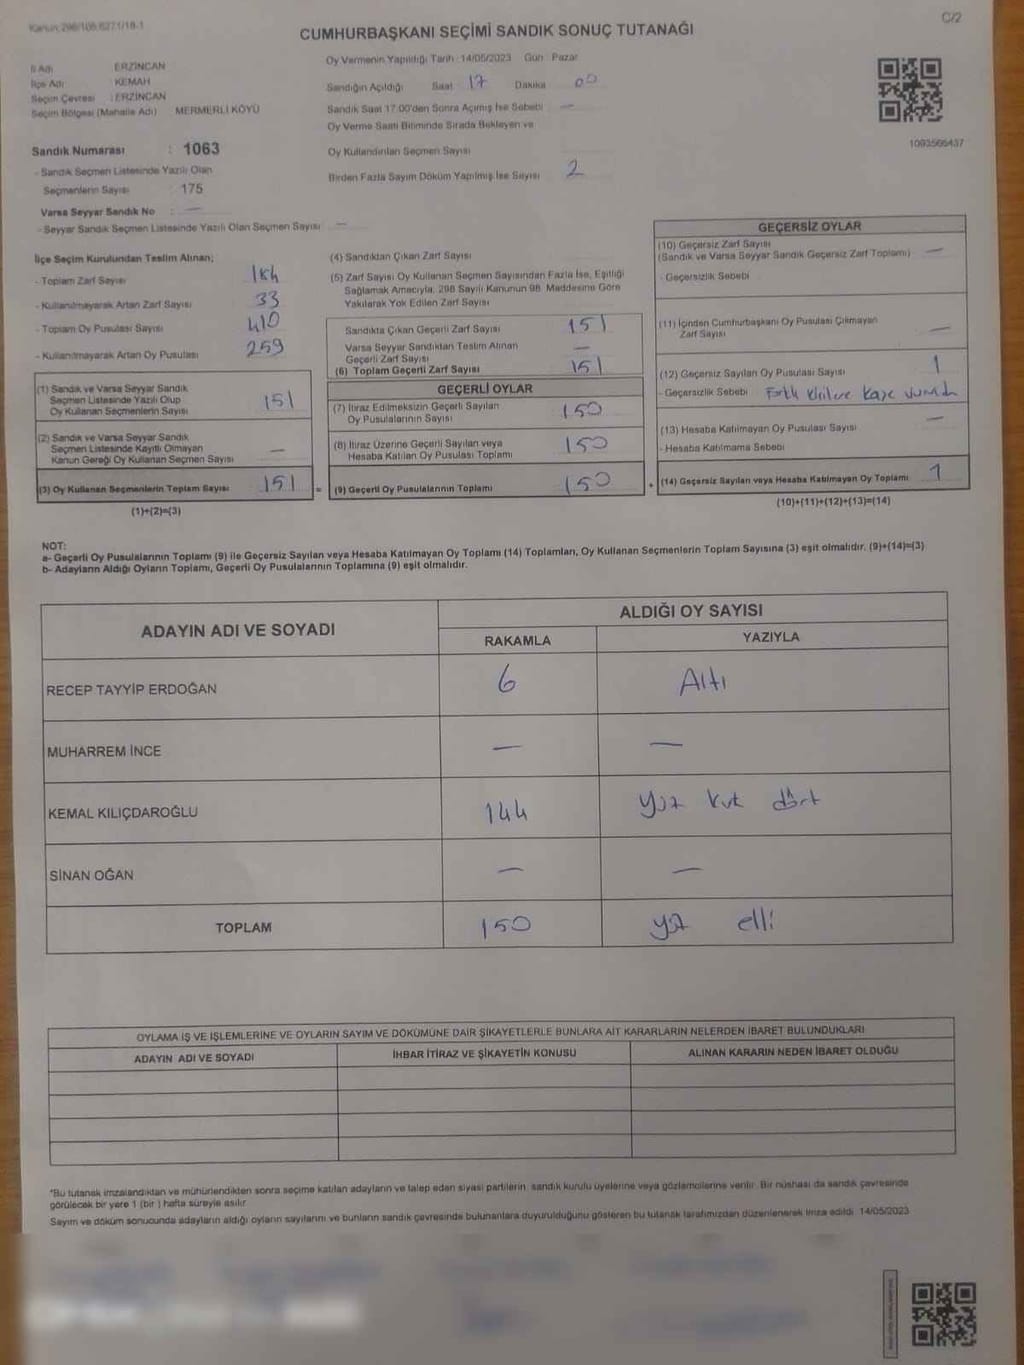 Kanun 298/106,6271/18-1
C/2
CUMHURBAŞKANI SEÇİMİ SANDIK SONUÇ TUTANAĞI
İl Adı ERZİNCAN
İlçe Adı KEMAH
Seçim Çevresi : ERZİNCAN
Seçim Bölgesi (Mahalle Adı) MERMERLİ KÖYÜ
Sandık Numarası : 1063
- Sandık Seçmen Listesinde Yazılı Olan
Seçmenlerin Sayısı : 175
Varsa Seyyar Sandık No : —
- Seyyar Sandık Seçmen Listesinde Yazılı Olan Seçmen Sayısı : —
Oy Vermenin Yapıldığı Tarih : 14/05/2023 Gün : Pazar
Sandığın Açıldığı Saat 17 Dakika 00
Sandık Saat 17.00'den Sonra Açımış İse Sebebi : —
Oy Verme Saati Bitiminde Sırada Bekleyen ve
Oy Kullandırılan Seçmen Sayısı
Birden Fazla Sayım Döküm Yapılmış İse Sayısı 2
1093566437
İlçe Seçim Kurulundan Teslim Alınan;
- Toplam Zarf Sayısı 184
- Kullanılmayarak Artan Zarf Sayısı 33
- Toplam Oy Pusulası Sayısı 410
- Kullanılmayarak Artan Oy Pusulası 259
(1) Sandık ve Varsa Seyyar Sandık
Seçmen Listesinde Yazılı Olup
Oy Kullanan Seçmenlerin Sayısı 151
(2) Sandık ve Varsa Seyyar Sandık
Seçmen Listesinde Kayıtlı Olmayan
Kanun Gereği Oy Kullanan Seçmen Sayısı —
(3) Oy Kullanan Seçmenlerin Toplam Sayısı 151 =
(1)+(2)=(3)
(4) Sandıktan Çıkan Zarf Sayısı
(5) Zarf Sayısı Oy Kullanan Seçmen Sayısından Fazla İse, Eşitliği
Sağlamak Amacıyla, 298 Sayılı Kanunun 98. Maddesine Göre
Yakılarak Yok Edilen Zarf Sayısı
Sandıkta Çıkan Geçerli Zarf Sayısı 151
Varsa Seyyar Sandıktan Teslim Alınan
Geçerli Zarf Sayısı —
(6) Toplam Geçerli Zarf Sayısı 151
GEÇERLİ OYLAR
(7) İtiraz Edilmeksizin Geçerli Sayılan
Oy Pusulalarının Sayısı 150
(8) İtiraz Üzerine Geçerli Sayılan veya
Hesaba Katılan Oy Pusulası Toplamı 150
(9) Geçerli Oy Pusulalarının Toplamı 150 +
GEÇERSİZ OYLAR
(10) Geçersiz Zarf Sayısı
(Sandık ve Varsa Seyyar Sandık Geçersiz Zarf Toplamı) —
- Geçersizlik Sebebi
(11) İçinden Cumhurbaşkanı Oy Pusulası Çıkmayan
Zarf Sayısı —
(12) Geçersiz Sayılan Oy Pusulası Sayısı 1
- Geçersizlik Sebebi Farklı
(13) Hesaba Katılmayan Oy Pusulası Sayısı —
- Hesaba Katılmama Sebebi
(14) Geçersiz Sayılan veya Hesaba Katılmayan Oy Toplamı 1
(10)+(11)+(12)+(13)=(14)
NOT:
a- Geçerli Oy Pusulalarının Toplamı (9) ile Geçersiz Sayılan veya Hesaba Katılmayan Oy Toplamı (14) Toplamları, Oy Kullanan Seçmenlerin Toplam Sayısına (3) eşit olmalıdır. (9)+(14)=(3)
b- Adayların Aldığı Oyların Toplamı, Geçerli Oy Pusulalarının Toplamına (9) eşit olmalıdır.
ADAYIN ADI VE SOYADI
ALDIĞI OY SAYISI
RAKAMLA YAZIYLA
RECEP TAYYİP ERDOĞAN 6 Altı
MUHARREM İNCE — —
KEMAL KILIÇDAROĞLU 144 Yüz kırk dört
SİNAN OĞAN — —
TOPLAM 150 yüz elli
OYLAMA İŞ VE İŞLEMLERİNE VE OYLARIN SAYIM VE DÖKÜMÜNE DAİR ŞİKAYETLERLE BUNLARA AİT KARARLARIN NELERDEN İBARET BULUNDUKLARI
ADAYIN ADI VE SOYADI İHBAR İTİRAZ VE ŞİKAYETİN KONUSU ALINAN KARARIN NEDEN İBARET OLDUĞU
*Bu tutanak imzalandıktan ve mühürlendikten sonra seçime katılan adayların ve talep eden siyasi partilerin, sandık kurulu üyelerine veya gözlemcilerine verilir. Bir nüshası da sandık çevresinde
görülecek bir yere 1 (bir) hafta süreyle asılır.
Sayım ve döküm sonucunda adayların aldığı oyların sayılarını ve bunların sandık çevresinde bulunanlara duyurulduğunu gösteren bu tutanak tarafımızdan düzenlenerek imza edildi. 14/05/2023